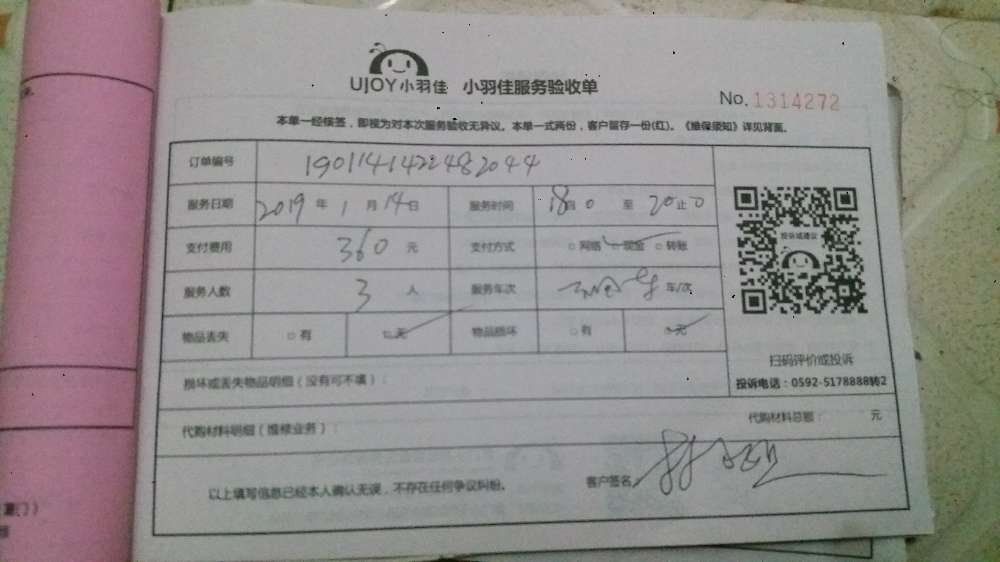 UJOY小羽佳 小羽佳服务验收单
No. 1314272
本单一经核签，即视为对本次服务验收无异议。本单一式两份，客户留存一份(红)。《维保须知》详见背面。
订单编号 1901141422482044
服务日期 2019 年 1 月 14 日 服务时间 至
支付费用 360 元 支付方式 □ 网络 □ 现金 □ 转账
服务人数 3 人 服务车次 车/次
物品丢失 □ 有 □ 无 物品损坏 □ 有 □ 无
投诉或建议
扫码评价或投诉
投诉电话：0592-5178888转2
损坏或丢失物品明细（没有可不填）：
代购材料明细（维修业务）： 代购材料总额： 元
以上填写信息已经本人确认无误，不存在任何争议纠纷。 客户签名